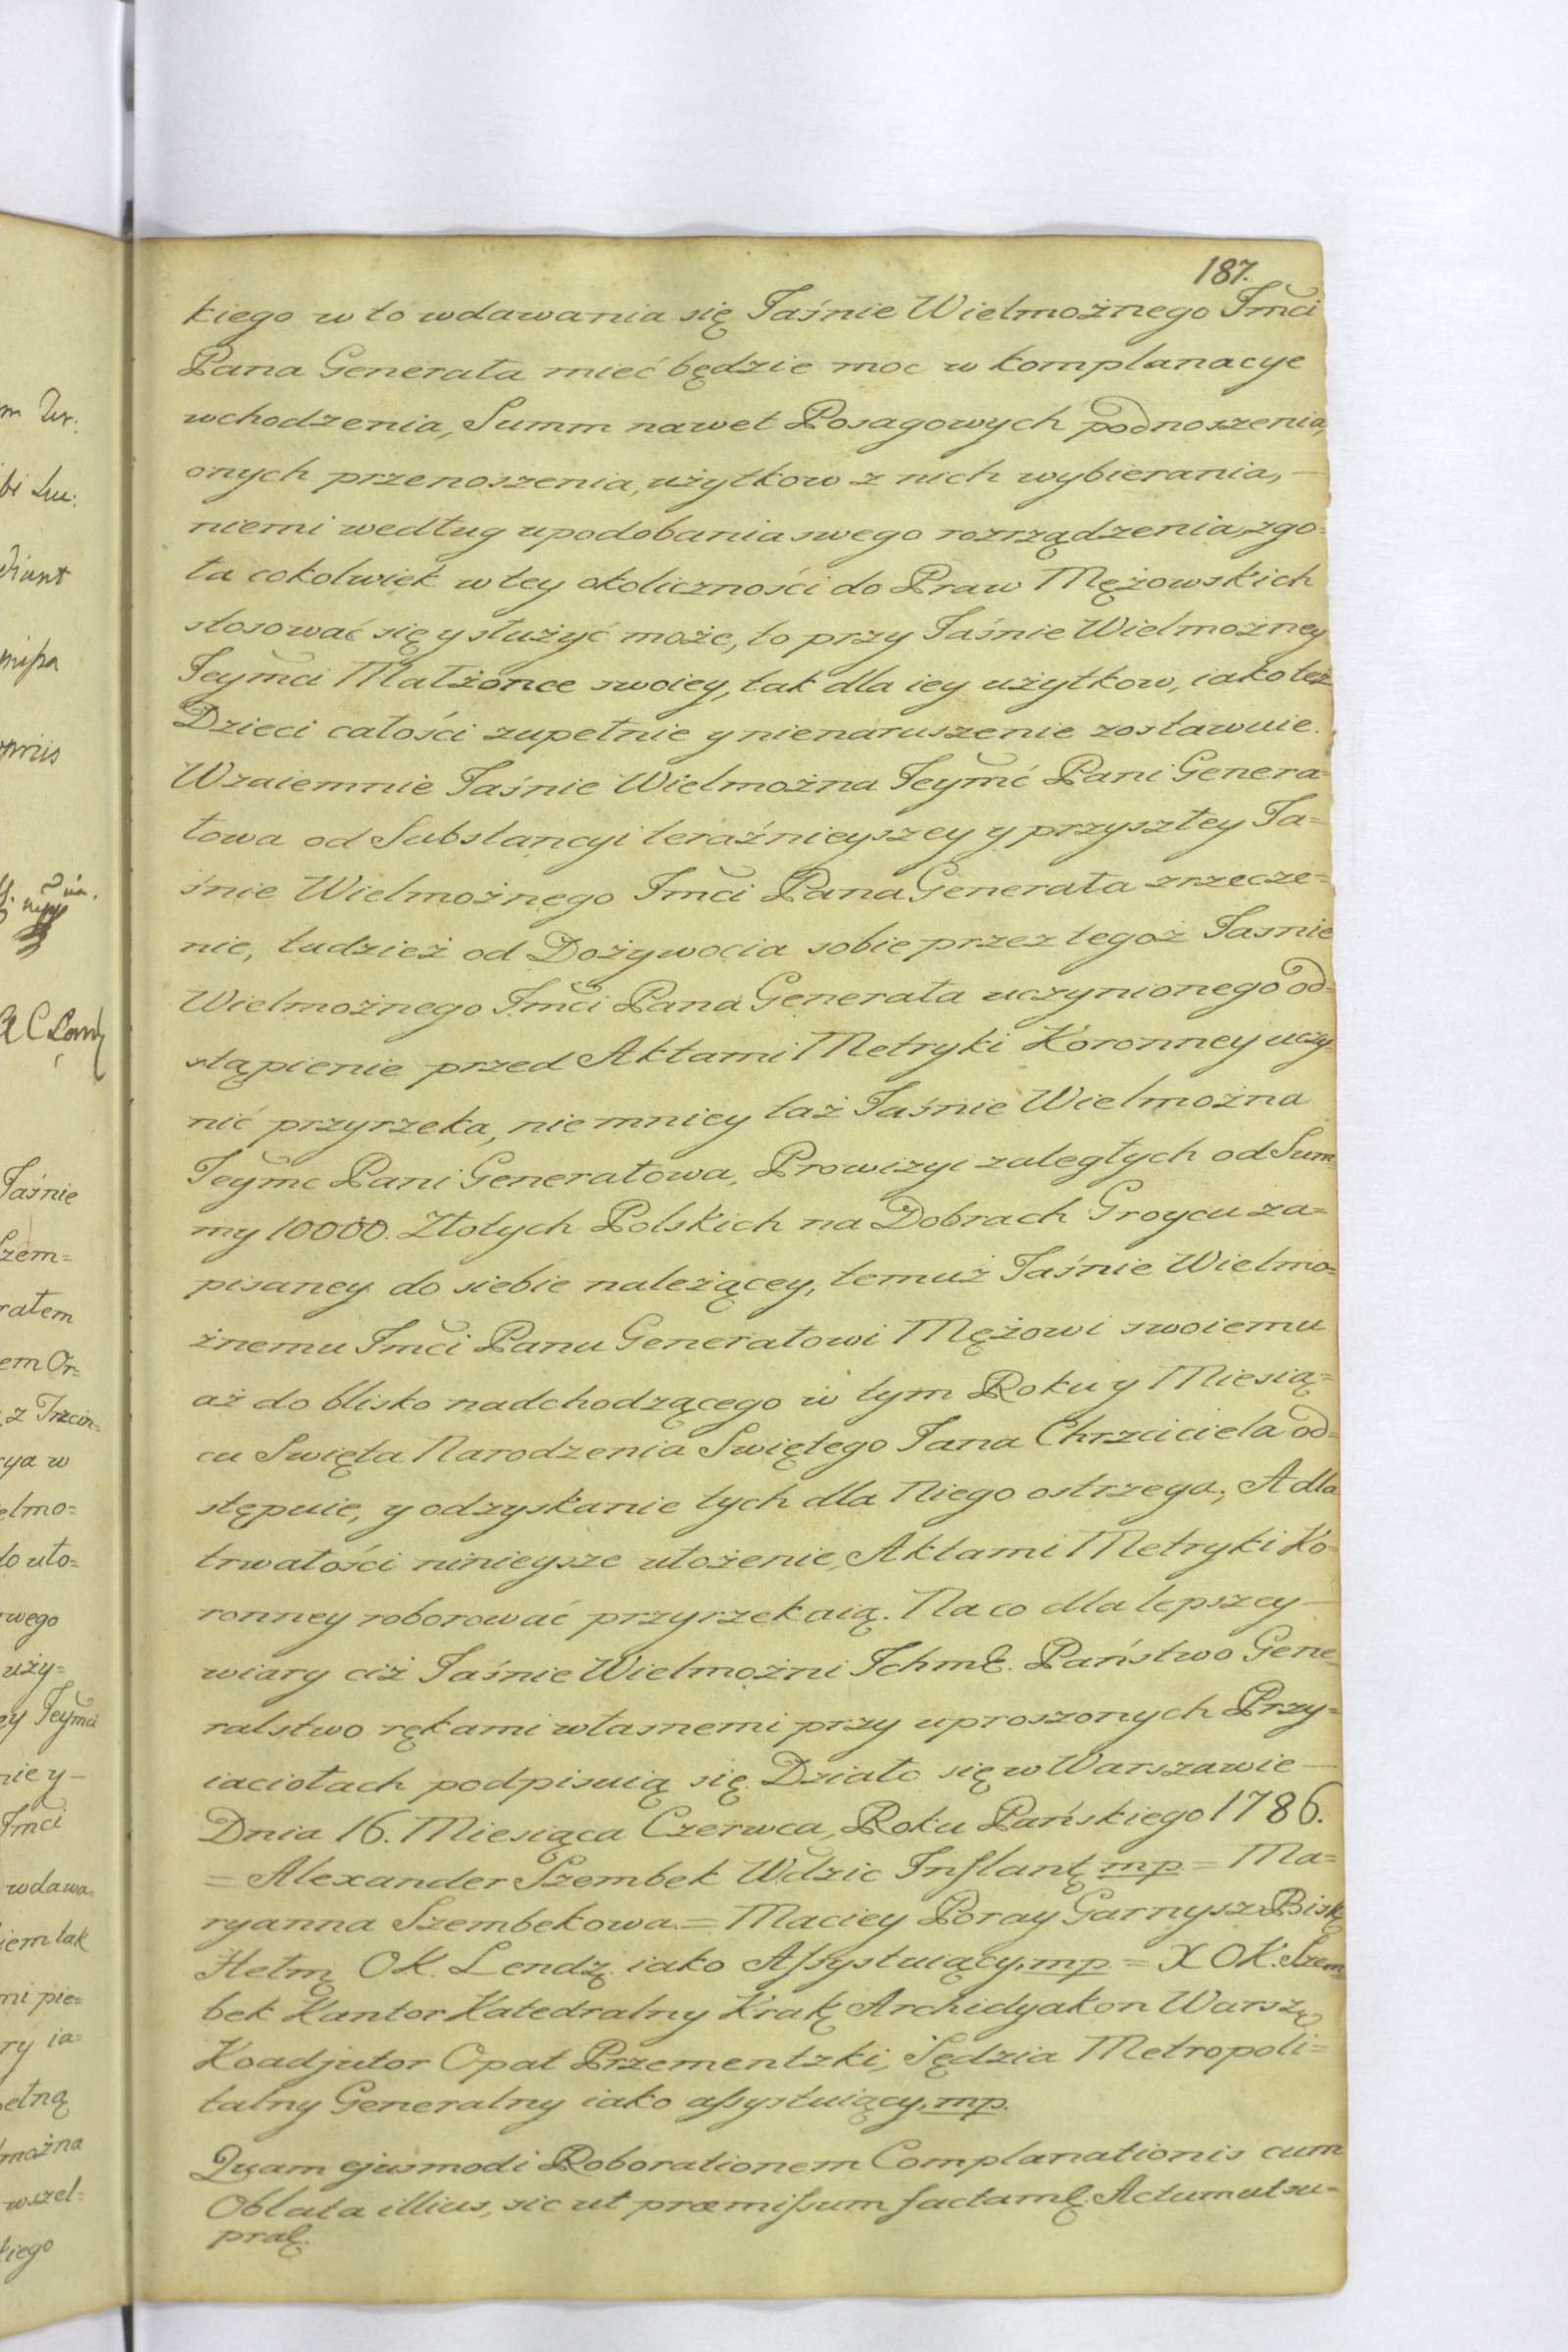 187.
kiego w to wdawania się Jaśnie Wielmożnego Jmci
Pana Generała mieć będzie moc w komplanacye
wchodzenia, Summ nawet Posagowych podnoszenia,
onych przenoszenia, użytkow z nich wybierania, —
niemi według upodobania swego rozrządzenia, zgo-
ła cokolwiek w tey okoliczności do Praw Mężowskich
stosować się y służyć może, to przy Jaśnie Wielmozney
Jeymci Małżonce swoiey, tak dla iey użytkow, iako też
Dzieci całości zupełnie y nienaruszenie zostawuie.
Wzaiemnie Jaśnie Wielmożna Jeymć Pani Genera-
łowa od Substancyi teraźnieyszey y przyszłey Ja=
śnie Wielmożnego Jmci Pana Generała zrzecze=
nie, tudzież od Dożywocia sobie przez tegoż Jasnie
Wielmożnego Jmci Pana Generała uczynionego od=
stąpienie przed Aktami Metryki Koronney uczy-
nić przyrzeka, niemniey taż Jaśnie Wielmożna
Jeymc Pani Generałowa, Prowizyi zaległych od Sum-
my 10000. Złotych Polskich na Dobrach Groycu za=
pisaney do siebie należącey, temuż Jaśnie Wielmo=
żnemu Jmci Panu Generałowi Mężowi swoiemu
aż do blisko nadchodzącego w tym Roku y Miesią=
cu Swięta Narodzenia Swiętego Jana Chrzciciela od=
stępuie, y odzyskanie tych dla Niego ostrzega; A dla
trwałości ninieysze ułożenie, Aktami Metryki Ko-
ronney roborować przyrzekaią. Na co dla lepszey —
wiary ciż Jaśnie Wielmożni Ichmć. Państwo Gene-
ralstwo rękami własnemi przy uproszonych Przy=
iaciołach podpisuią się. Działo się w Warszawie —
Dnia 16. Miesiąca Czerwca, Roku Pańskiego 1786.
= Alexander Szembek Wdzic Inflant mp. = Ma=
ryanna Szembekowa = Maciey Poray Garnysz Bisk
Hełm OK. Lendz iako Assystuiący. mp. = X OK. Szem-
bek Kantor Katedralny Krak Archidyakon Warsz
Koadjutor Opat Przementzki, Sędzia Metropoli=
talny Generalny iako assystuiący. mp.
Quam ejusmodi Roborationem Complanationis cum
Oblata illius, sic ut præmissum factam. Actum ut su-
pra.
m Ur:
bi Lu:
diunt
missa
Jaśnie
Szem=
rałem
em Or=
z Trzcin=
cya w
elmo=
do uło=
rwego
uży=
ey Jeymci
nie y —
Jmci
wdawa-
iem tak
mi pie=
ry ia=
ełną
można
wszel=
kiego